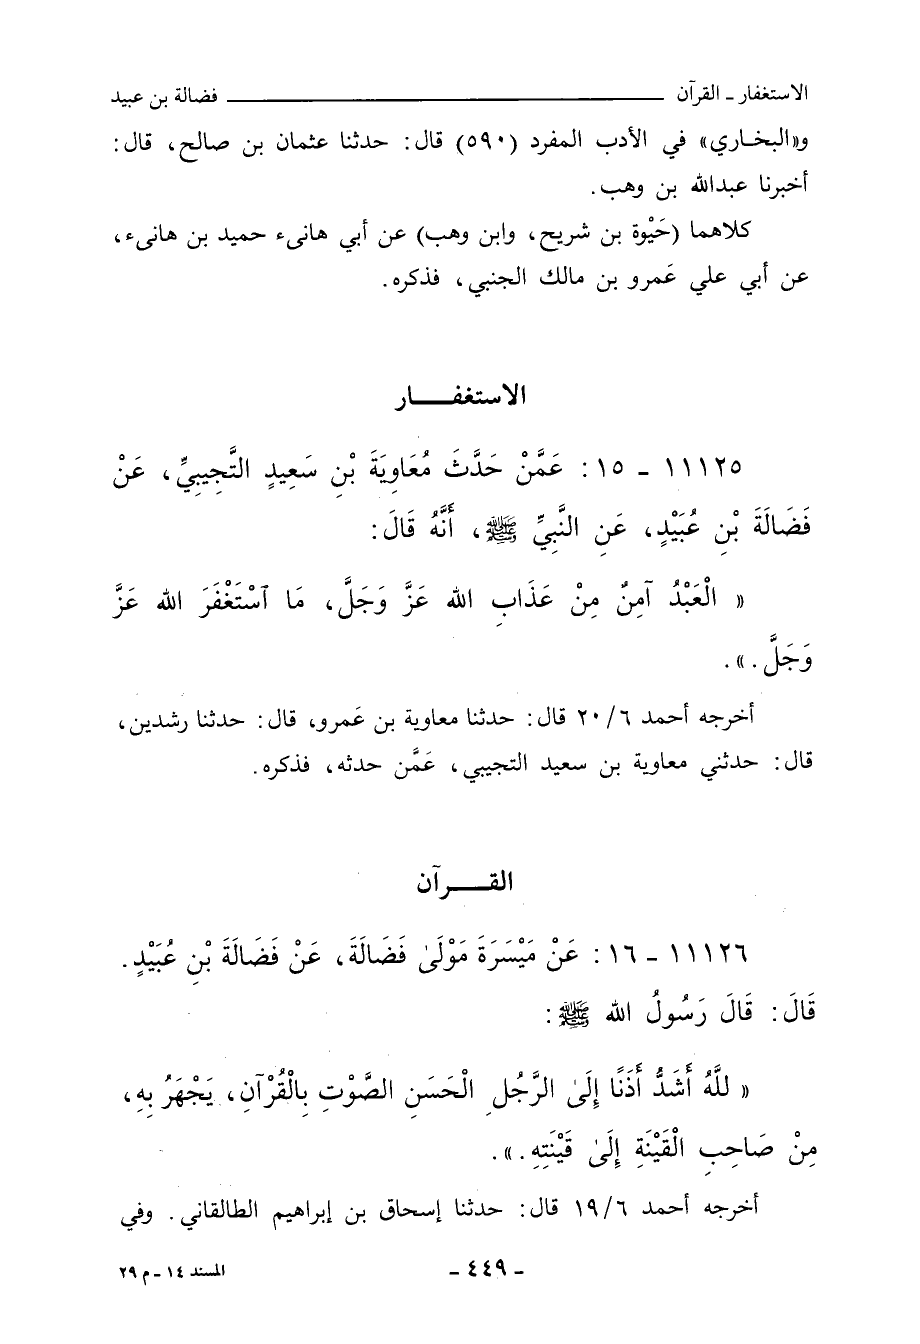 الاستغفار ـ القرآن ــــــــــــــــــــــــــــــــــــــــ فضالة بن عبيد
و«البخاري» في الأدب المفرد (٥٩٠) قال: حدثنا عثمان بن صالح، قال:
أخبرنا عبدالله بن وهب.
كلاهما (حَيْوة بن شريح، وابن وهب) عن أبي هانىء حميد بن هانىء،
عن أبي علي عَمرو بن مالك الجنبي، فذكره.
الاستغفــــار
١١١٢٥ ـ ١٥: عَمَّنْ حَدَّثَ مُعَاوِيَةَ بْنِ سَعِيدٍ التُّجِيبِيِّ، عَنْ
فَضَالَةَ بْنِ عُبَيْدٍ، عَنِ النَّبِيِّ ﷺ، أَنَّهُ قَالَ:
« الْعَبْدُ آمِنٌ مِنْ عَذَابِ الله عَزَّ وَجَلَّ، مَا ٱسْتَغْفَرَ الله عَزَّ
وَجَلَّ.».
أخرجه أحمد ٢٠/٦ قال: حدثنا معاوية بن عَمرو، قال: حدثنا رشدين،
قال: حدثني معاوية بن سعيد التجيبي، عَمَّن حدثه، فذكره.
القــــرآن
١١١٢٦ ـ ١٦: عَنْ مَيْسَرَةَ مَوْلَىٰ فَضَالَةَ، عَنْ فَضَالَةَ بْنِ عُبَيْدٍ.
قَالَ: قَالَ رَسُولُ الله ﷺ:
« للَّهُ أَشَدُّ أَذَنًا إِلَىٰ الرَّجُلِ الْحَسَنِ الصَّوْتِ بِالْقُرْآنِ، يَجْهَرُ بِهِ،
مِنْ صَاحِبِ الْقَيْنَةِ إِلَىٰ قَيْنَتِهِ.».
أخرجه أحمد ١٩/٦ قال: حدثنا إسحاق بن إبراهيم الطالقاني. وفي
ـ ٤٤٩ ـ المسند ١٤ ـ م ٢٩